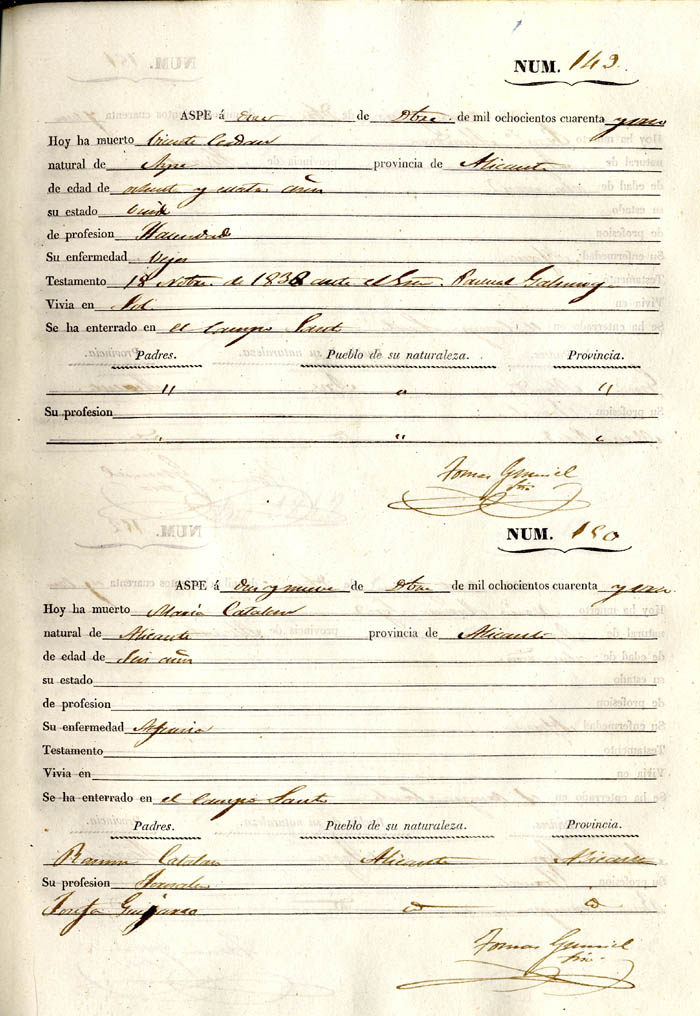 NUM. 149.
ASPE á de Dbre de mil ochocientos cuarenta y uno
Hoy ha muerto Vicente
natural de Aspe provincia de Alicante
de edad de ochenta y cuatro años
su estado Viudo
de profesion Hacendado
Su enfermedad Vejez
Testamento 18 Nobre. de 1838 ante el Esno. Pascual
Vivia en Sol
Se ha enterrado en el Campo Santo
Padres. Pueblo de su naturaleza. Provincia.
" " "
Su profesion
" " "
Tomas
NUM. 150
ASPE á diez y nueve de Dbre de mil ochocientos cuarenta y uno
Hoy ha muerto Maria Catalan
natural de Alicante provincia de Alicante
de edad de Seis años
su estado
de profesion
Su enfermedad
Testamento
Vivia en
Se ha enterrado en el Campo Santo
Padres. Pueblo de su naturaleza. Provincia.
Ramon Catalan Alicante Alicante
Su profesion Jornalero
Josefa Guijarro
Tomas